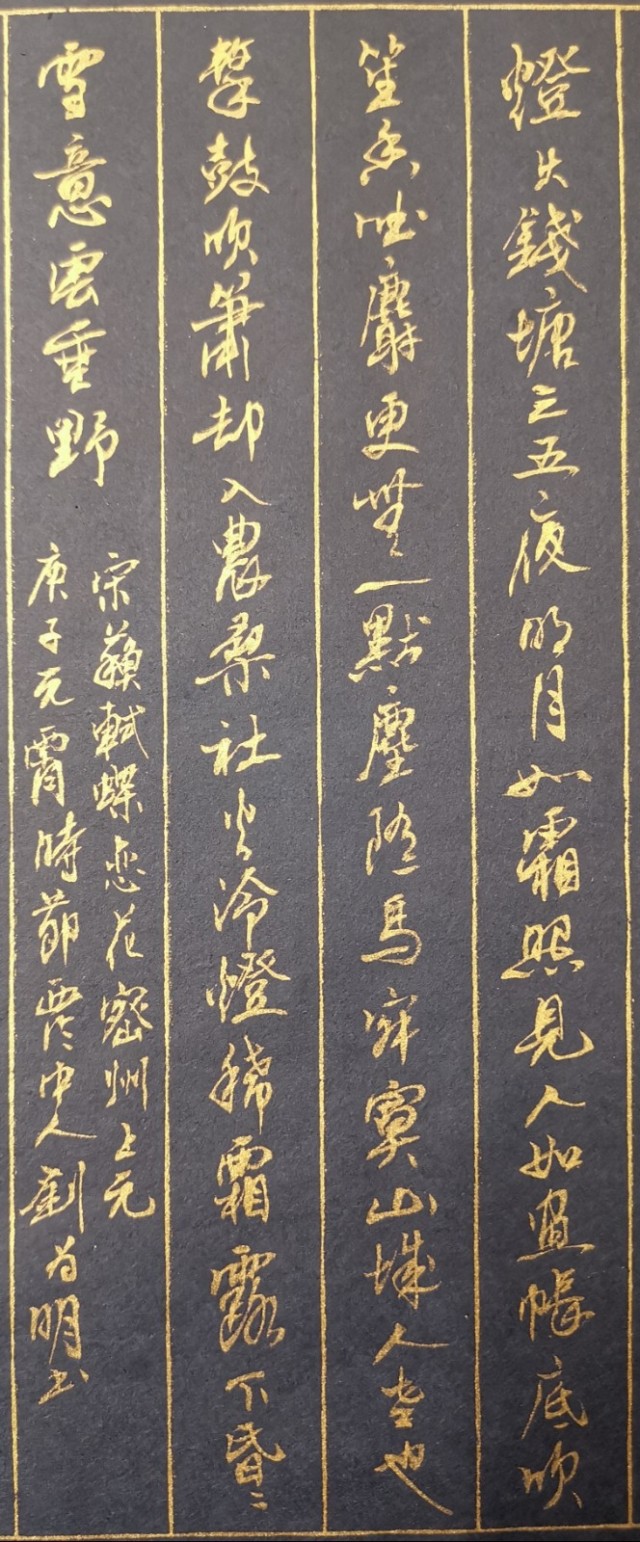 燈火錢塘三五夜明月如霜照見人如畫帳底吹
笙香吐麝更無一點塵隨馬寂寞山城人老也
擊鼓吹簫却入農桑社火冷燈稀霜露下昏昏
雪意雲垂野
宋蘇軾蝶恋花密州上元
庚子元宵時節霑中人劉为明书